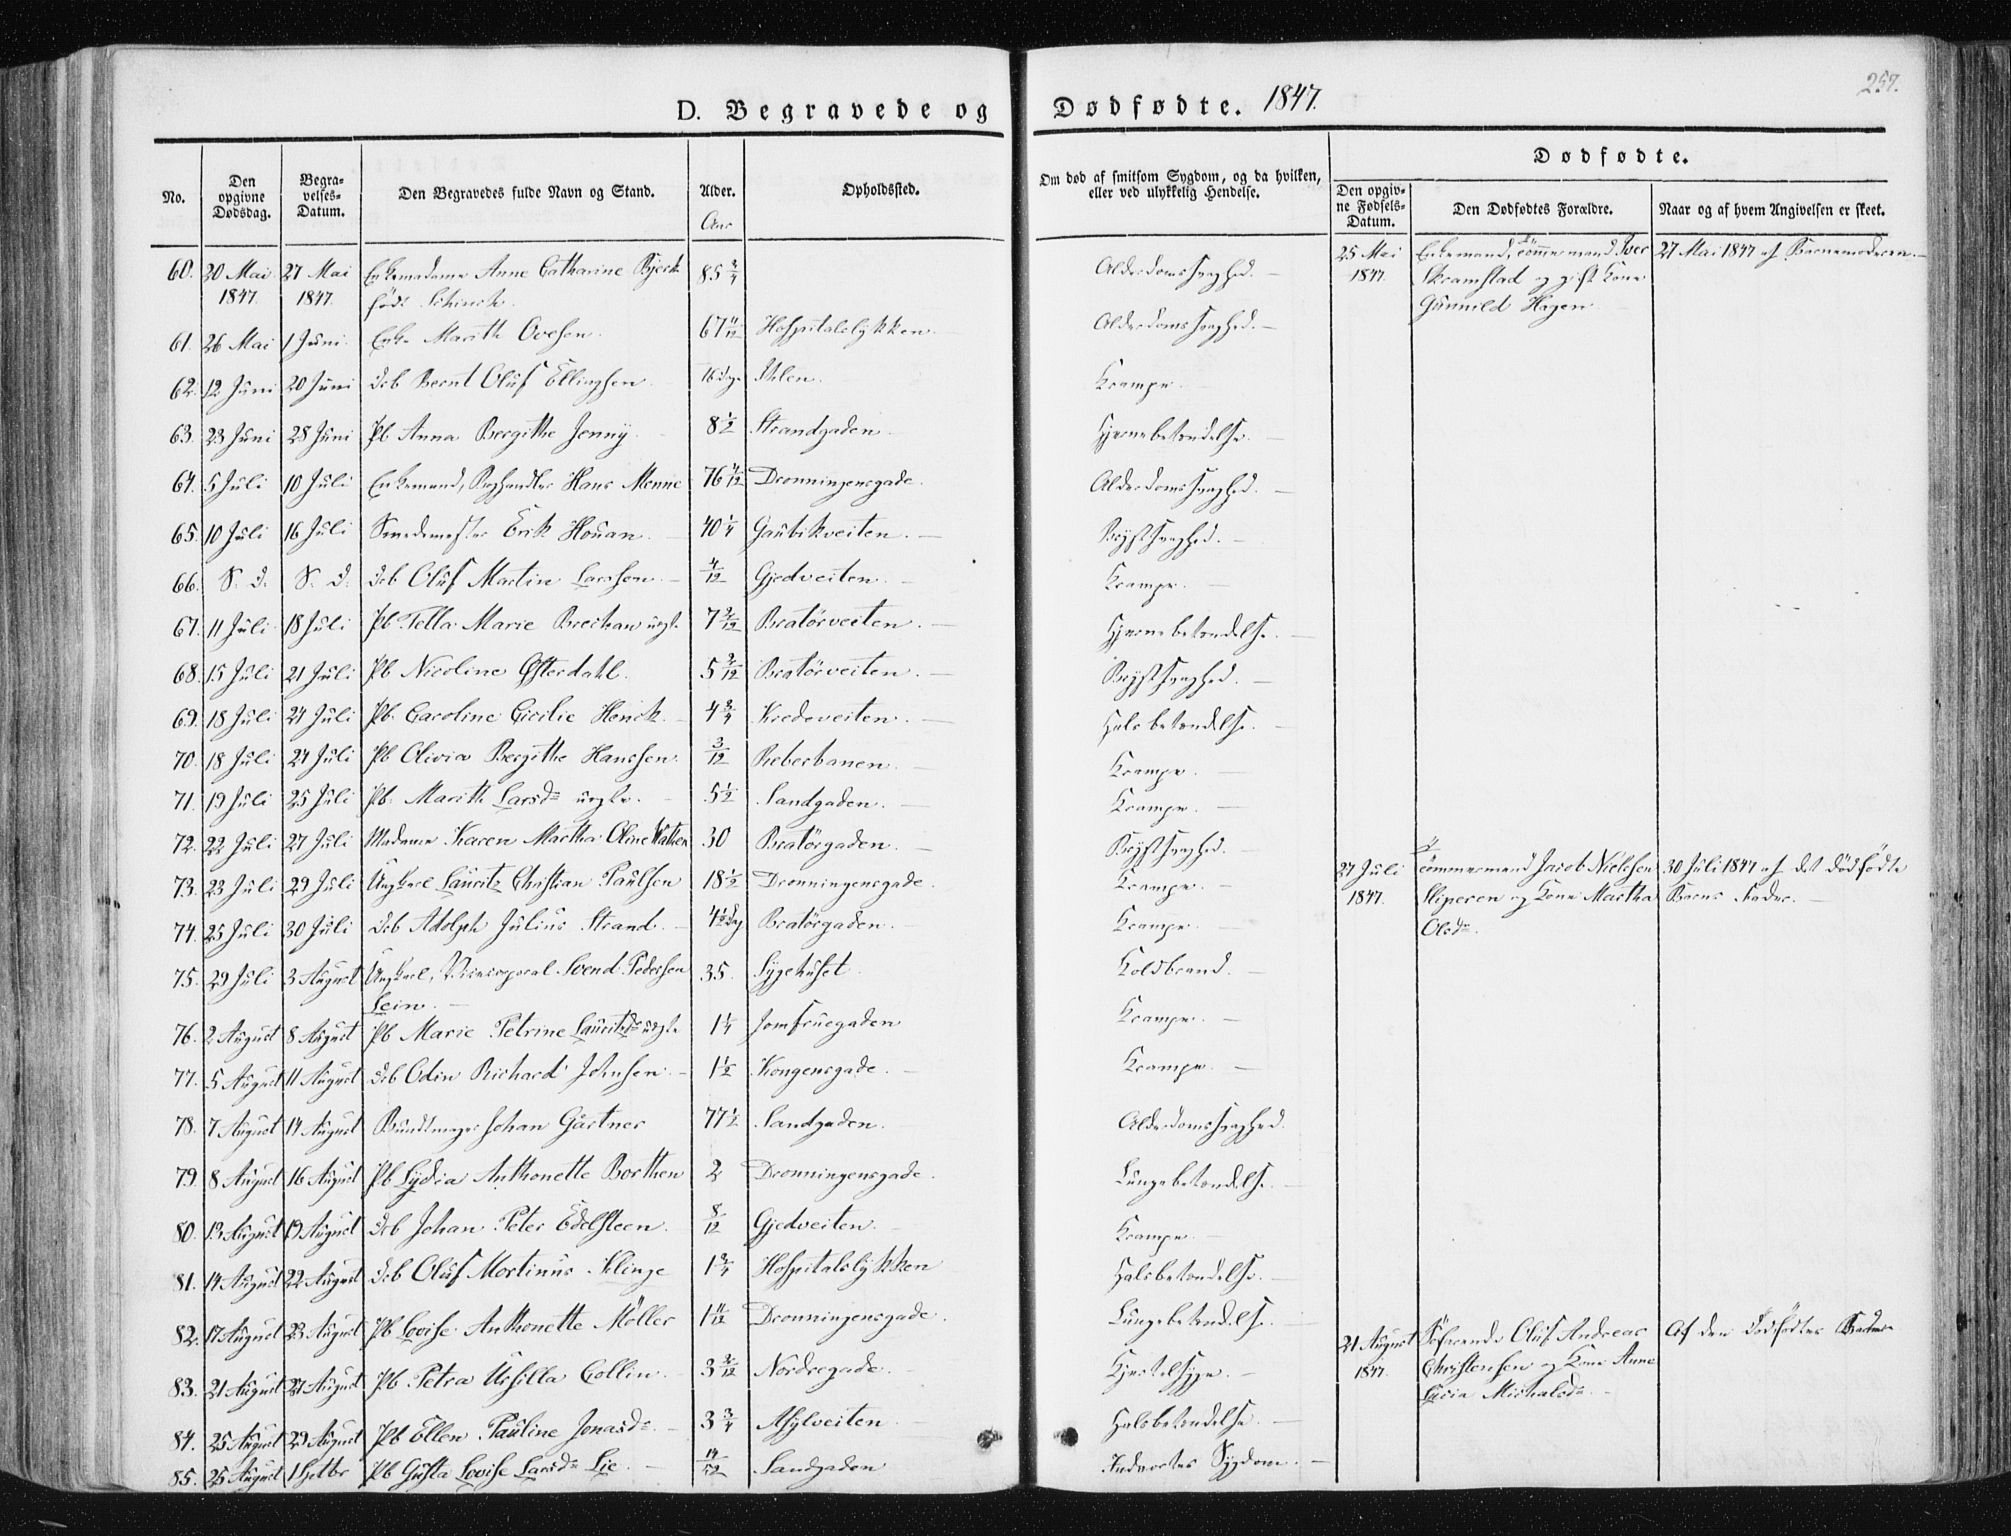 257.
D. Begravede og Dødfødte. 1847.
No. | Den opgivne Dødsdag. | Begravelses-Datum. | Den Begravedes fulde Navn og Stand. | Alder. Aar | Opholdssted. | Om død af smitsom Sygdom, og da hvilken, eller ved ulykkelig Hendelse. | Dødfødte. Den opgivne Fødsels-Datum. | Den Dødfødtes Forældre. | Naar og af hvem Angivelsen er skeet.
60. | 20 Mai 1847. | 27 Mai 1847. | Enkemadame Anne Catharine | 85 3/4 | | Alderdomssvaghed. | 25 Mai 1847. | Enkemand, Tömmermand Iver Skramstad og gift Kone Gunnild Hagen | 27 Mai 1847 af Barnemoderen.
född Schinck.
61. | 26 Mai | 1 Juni | Enke Marith Ovesen. | 67 11/12 | Hospitalslykken. | Alderdomssvaghed.
62. | 12 Juni | 20 Juni | Drb Bernt Oluf Ellingsen | 16 Dage | Ihlen. | Krampe.
63. | 23 Juni | 28 Juni | Pb Anna Bergithe Jenny. | 8 1/2 | Strandgaden. | Hjernebetændelse.
64. | 5 Juli | 10 Juli | Enkemand, Boghandler Hans Menne | 76 4/12 | Dronningensgade. | Alderdomssvaghed.
65. | 10 Juli | 16 Juli | Smedemester Erik Houan. | 40 1/4 | Gaubikveiten. | Brystsvaghed.
66. | S. D. | S. D. | Drb Oluf Martin Larssen. | 4/12 | Gjedveiten. | Krampe.
67. | 11 Juli | 18 Juli | Pb Tella Marie Brechan uægte | 7 2/12 | Bratörveiten. | Hjernebetændelse.
68. | 15 Juli | 21 Juli | Pb Nicoline Østerdahl. | 5 2/12 | Bratörveiten. | Brystsvaghed.
69. | 18 Juli | 24 Juli | Pb. Caroline Cicilie Henck. | 4 3/4 | Kredveiten. | Halsbetændelse.
70. | 18 Juli | 24 Juli | Pb Olivia Bergithe Hanssen. | 3/12 | Reberbanen. | Krampe.
71. | 19 Juli | 25 Juli | Pb. Marith Larsdr uægte. | 5 1/2 | Sandgaden. | Krampe.
72. | 22 Juli | 27 Juli | Madame Karen Martha Oline | 30 | Bratörgaden. | Brystsvaghed.
73. | 23 Juli | 29 Juli | Ungkarl Lauritz Christian Paulsen | 18 1/2 | Dronningensgade. | Krampe. | 27 Juli 1847. | Tömmermand Jacob Nielsen Sliperen og Kone Martha Olsdr. | 30 Juli 1847 af det dödfödte Barns Fader.
74. | 25 Juli | 30 Juli | Drb Adolph Julius Strand. | 4 1/2 Dag | Bratörgaden. | Krampe.
75. | 29 Juli | 3 August | Ungkarl, Svend Pedersen Lein. | 35. | Sygehuset | Koldbrand.
76. | 2 August | 8 August | Pb Marie Petrine Lauritzdr uægte | 1 1/4 | Jomfruegaden | Krampe.
77. | 5 August | 11 August | Drb Odin Richard Johnsen. | 1 1/2 | Kongensgade. | Krampe.
78. | 7 August | 14 August | Bundtmager Johan Gärtner | 77 1/2 | Sandgaden. | Alderdomssvaghed.
79. | 8 August | 16 August | Pb Lydia Anthonette Borthen | 2 | Dronningensgade. | Lungebetændelse.
80. | 13 August | 19 August | Drb Johan Peter Edelsteen. | 8/12 | Gjedveiten. | Krampe.
81. | 14 August | 22 August | Drb Oluf Mortinus Klinge | 1 3/4 | Hospitalslykken | Halsbetændelse.
82. | 17 August | 23 August | Pb Lovise Anthonette Möller | 1 11/12 | Dronningensgade. | Lungebetændelse. | 21 August 1847. | Söfarende Oluf Andreas Christensen og Kone Anne Lucia Michalsdr. | Af den Dödfödtes Fader
83. | 21 August | 27 August | Pb Petra Ursilla Collin. | 3 2/12 | Nordregade. | Kjertelsyge.
84. | 25 August | 29 August | Pb Ellen Pauline Jonasdr. | 3 3/4 | Asylveiten. | Halsbetændelse.
85. | 25 August | 1 Septbr | Pb Gusta Lovise Larsdr Lie. | 14/52 | Sandgaden | Indvortes Sygdom.